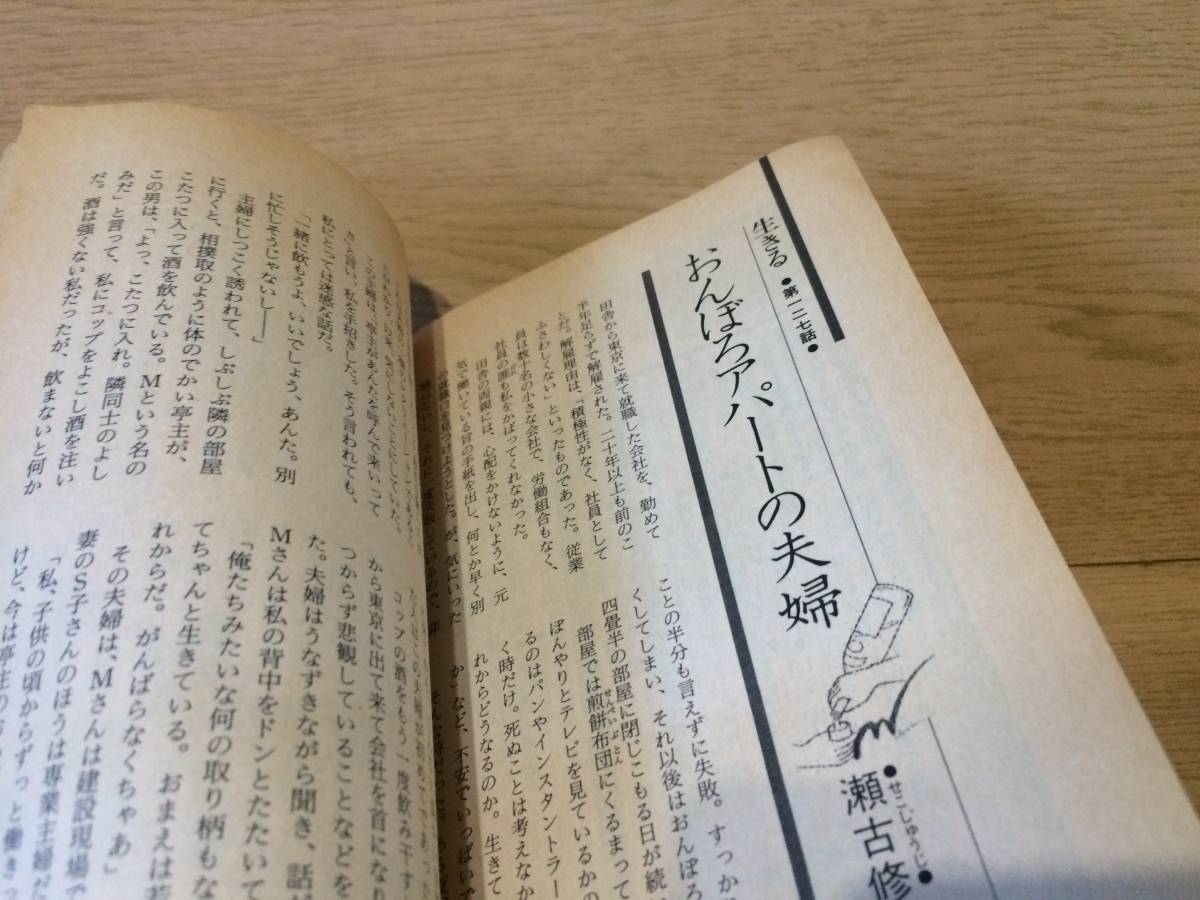 生きる ●第一二七話●
おんぼろアパートの夫婦
●せこしゅうじ●
瀬古修
田舎から東京に来て就職した会社を、勤めて
半年足らずで解雇された。二十年以上も前のこ
とだ。解雇理由は、「積極性がなく、社員として
ふさわしくない」といったものであった。従業
員は数十名の小さな会社で、労働組合もなく、
社員の誰も私をかばってくれなかった。
田舎の両親には、心配をかけないように、元
気で働いている旨の手紙を出し、何とか早く別
の就職口を見つけようとした。が、気にいった
ことの半分も言えずに失敗。すっか
くしてしまい、それ以後はおんぼろ
四畳半の部屋に閉じこもる日が続
部屋では煎餅布団にくるまって
せんべいぶとん
ぼんやりとテレビを見ているかの
るのはパンやインスタントラー
く時だけ。死ぬことは考えなか
れからどうなるのか。生きて
か」など、不安でいっぱいで
そんな時だった。
この主婦は、「亭主があんたを呼んで来いって
さ」と言い、私を手招きした。そう言われても、
私にとっては迷惑な話だ。
「一緒に飲もうよ、いいでしょう、あんた。別
に忙しそうじゃないし――」
主婦にしつこく誘われて、しぶしぶ隣の部屋
に行くと、相撲取のように体のでかい亭主が、
こたつに入って酒を飲んでいる。Mという名の
この男は、「よっ、こたつに入れ。隣同士のよし
みだ」と言って、私にコップをよこし酒を注い
だ。酒は強くない私だったが、飲まないと何か
コップの酒をもう一度飲み干す
から東京に出て来て会社を首になり
つからず悲観していることなどを
た。夫婦はうなずきながら聞き、話が
Mさんは私の背中をドンとたたいて
「俺たちみたいな何の取り柄もな
てちゃんと生きている。おまえは若
れからだ。がんばらなくちゃあ」
その夫婦は、Mさんは建設現場で
妻のS子さんのほうは専業主婦だ
「私、子供の頃からずっと働き
けど、今は亭主の